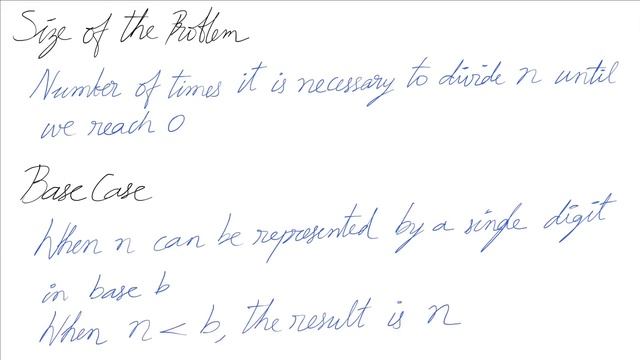 Size of the Problem
Number of times it is necessary to divide n until
we reach 0
Base Case
When n can be represented by a single digit
in base b
When n < b, the result is n